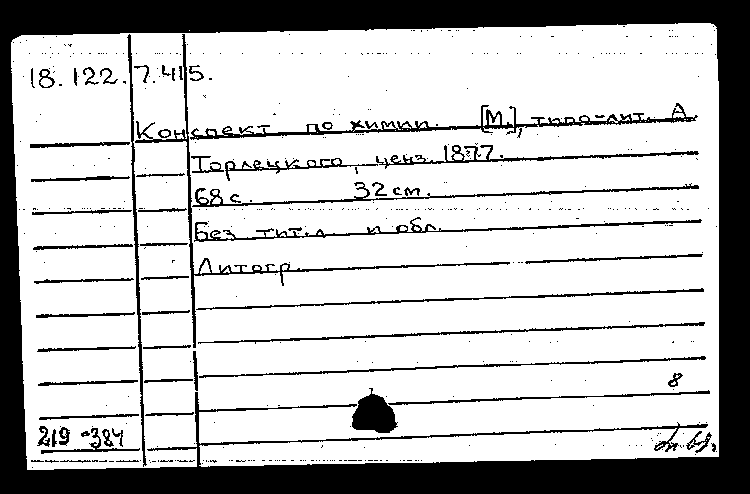 18.122.7.415.
Конспект по химии. [М.], типо-лит. А.
Торлецкого, ценз. 1877.
68 с. 32 cm.
Без тит. л. и обл.
Литогр.
8
219-384